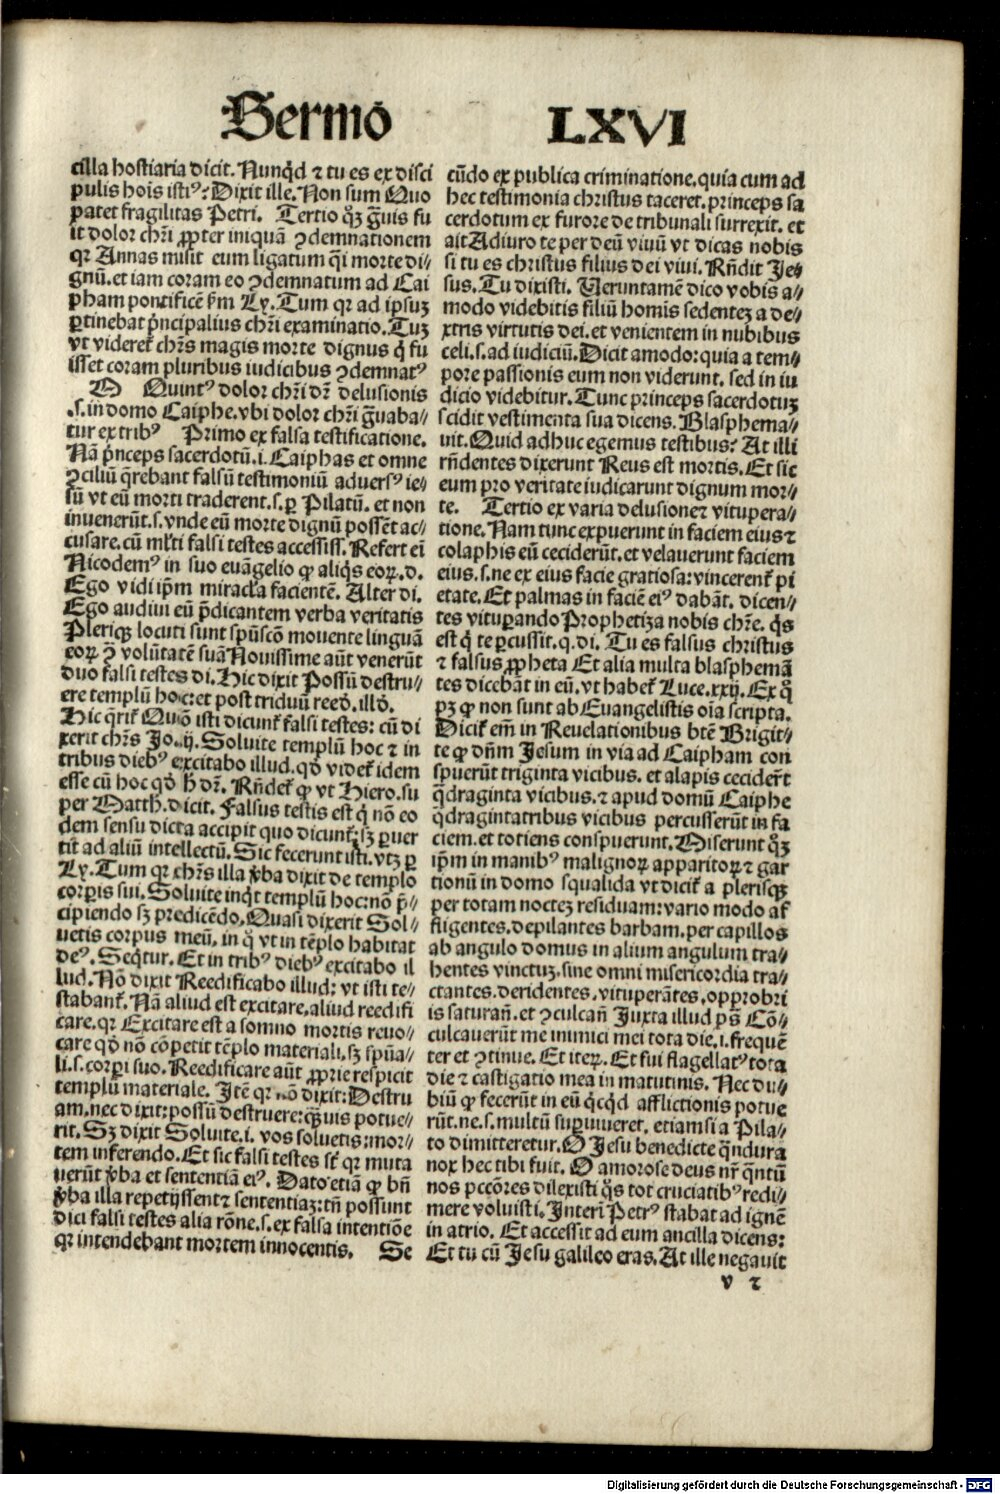 Sermo LXVI
cilla hostiaria dicit. Nunq̇d ⁊ tu es ex disci
pulis hoīs istiꝰ: Dixit ille. Non sum Quo
patet fragilitas Petri. Tertio q̄ꝫ g̃uis fu
it dolor chr̄i ꝓpter iniquā ꝯdemnationem
qꝛ Annas misit eum ligatum q̄i morte di⸗
gnū. et iam coram eo ꝯdemnatum ad Cai
pham pontificē ẜm Ly. Tum qꝛ ad ipsuꝫ
ꝑtinebat p̄ncipalius chr̄i examinatio. Tuꝫ
vt videret᷑ chr̄s magis morte dignus q̇ fu
isset coram pluribus iudicibus ꝯdemnatꝰ
O Quintꝰ dolor chr̄i dr̄ delusionis
.s. in domo Caiphe. vbi dolor chr̄i g̃uaba⸗
tur ex tribꝰ Primo ex falsa testificatione.
Nā p̄nceps sacerdotū .i. Caiphas et omne
ꝯciliū q̄rebant falsū testimoniū aduersꝰ ie⸗
sū vt eū morti traderent .s. ꝑ Pilatū. et non
inuenerūt .s. vnde eū morte dignū possēt ac⸗
cusare. cū ml̕ti falsi testes accessiss̄. Refert eī
Nicodemꝰ in suo euāgelio ꝙ aliq̇s eoꝝ .d.
Ego vidi ip̄m miracl̕a facientē. Alter di.
Ego audiui eū p̄dicantem verba veritatis
Pleriqꝫ locuti sunt spūscō mouente linguā
eoꝝ ꝯ̄ volūtatē suā Nouissime aūt venerūt
duo falsi testes di. Hic dixit Possū destru⸗
ere templū hoc: et post triduū reed̄. illd̄.
Hic q̄rit᷑ Quō isti dicunt᷑ falsi testes: cū di
xerit chr̄s Jo. ij. Soluite templū hoc ⁊ in
tribus diebꝰ excitabo illud. qd̄ videt᷑ idem
esse cū hoc qd̄ h̄ dr̄. Rn̄det᷑ ꝙ vt Hiero. su
per Matth. dicit. Falsus testis est q̇ nō eo
dem sensu dicta accipit quo dicunt᷑: sꝫ ꝑuer
tit ad aliū intellectū. Sic fecerunt isti. vtꝫ ꝑ
Ly. Tum qꝛ chr̄s illa v̄ba dixit de templo
corꝑis sui. Soluite inq̇t templū hoc: nō p̄⸗
cipiendo sꝫ predicēdo. Quasi dixerit Sol⸗
uetis corpus meū, in q̊ vt in tēplo habitat
deꝰ. Seq̇tur. Et in tribꝰ diebꝰ excitabo il
lud. Nō dixit Reedificabo illud: vt isti te⸗
stabant᷑. Nā aliud est excitare, aliud reedifi
care. qꝛ Excitare est a somno mortis reuo⸗
care qd̄ nō cōpetit tēplo materiali, sꝫ spūa⸗
li .s. corꝑi suo. Reedificare aūt ꝓprie respicit
templū materiale. Jtē qꝛ nō dixit: Destru
am. nec dixit: possū destruere: q̄uis potue⸗
rit. Sꝫ dixit Soluite .i. vos soluetis: mor⸗
tem inferendo. Et sic falsi testes st̄ qꝛ muta
uerūt v̄ba et sententiā eiꝰ. Dato etiā ꝙ bn̄
v̄ba illa repetijssent ⁊ sententiaꝫ: tn̄ possunt
dici falsi testes alia rōne .s. ex falsa intentiōe
qꝛ intendebant mortem innocentis. Se
cūdo ex publica criminatione. quia cum ad
hec testimonia christus taceret. princeps sa
cerdotum ex furore de tribunali surrexit. et
ait Adiuro te per deū viuū vt dicas nobis
si tu es christus filius dei viui. Rn̄dit Je⸗
sus. Tu dixisti. Veruntamē dico vobis a⸗
modo videbitis filiū homīs sedenteꝫ a de⸗
xtris virtutis dei. et venientem in nubibus
celi .s. ad iudiciū. Dicit amodo: quia a tem⸗
pore passionis eum non viderunt. sed in iu
dicio videbitur. Tunc princeps sacerdotuꝫ
scidit vestimenta sua dicens. Blasphema⸗
uit. Quid adhuc egemus testibus: At illi
rn̄dentes dixerunt Reus est mortis. Et sic
eum pro veritate iudicarunt dignum mor⸗
te. Tertio ex varia delusione ⁊ vitupera⸗
tione. Nam tunc expuerunt in faciem eius ⁊
colaphis eū ceciderūt. et velauerunt faciem
eius .s. ne ex eius facie gratiosa: vincerent᷑ pi
etate. Et palmas in faciē eiꝰ dabāt. dicen⸗
tes vituꝑando Prophetiza nobis chr̄e. q̇s
est q̇ te ꝑcussit. q. di. Tu es falsus christus
⁊ falsus ꝓpheta Et alia multa blasphemā
tes dicebāt in eū. vt habet᷑ Luce. xxij. Ex q̊
pꝫ ꝙ non sunt ab Euangelistis oīa scripta.
Dicit᷑ em̄ in Reuelationibus btē Brigit⸗
te ꝙ dn̄m Jesum in via ad Caipham con
spuerūt triginta vicibus. et alapis cecider̄t
q̄draginta vicibus. ⁊ apud domū Caiphe
q̄dragintatribus vicibus percusserūt in fa
ciem. et totiens conspuerunt. Miserunt q̄ꝫ
ip̄m in manibꝰ malignoꝝ apparitoꝝ ⁊ gar
tionū in domo squalida vt dicit᷑ a plerisqꝫ
per totam nocteꝫ residuam: vario modo af
fligentes. depilantes barbam. per capillos
ab angulo domus in alium angulum tra⸗
hentes vinctuꝫ. sine omni misericordia tra⸗
ctantes. deridentes. vituperātes. opprobri
is saturan̄. et ꝯculcan̄ Juxta illud ps̄ Cō⸗
culcauerūt me inimici mei tota die .i. frequē
ter et ꝯtinue. Et iteꝝ. Et fui flagellatꝰ tota
die ⁊ castigatio mea in matutinis. Nec du⸗
biū ꝙ fecerūt in eū q̇cq̇d afflictionis potue
rūt. ne .s. multū suꝑuiueret. etiamsi a Pila⸗
to dimitteretur. O Jesu benedicte q̄ndura
nox hec tibi fuit. O amorose deus nr̄ q̄ntū
nos pccōres dilexisti q̇s tot cruciatibꝰ redi⸗
mere voluisti. Jnteri Petrꝰ stabat ad ignē
in atrio. Et accessit ad eum ancilla dicens:
Et tu cū Jesu galileo eras. At ille negauit
v 2
Digitalisierung gefördert durch die Deutsche Forschungsgemeinschaft - DFG